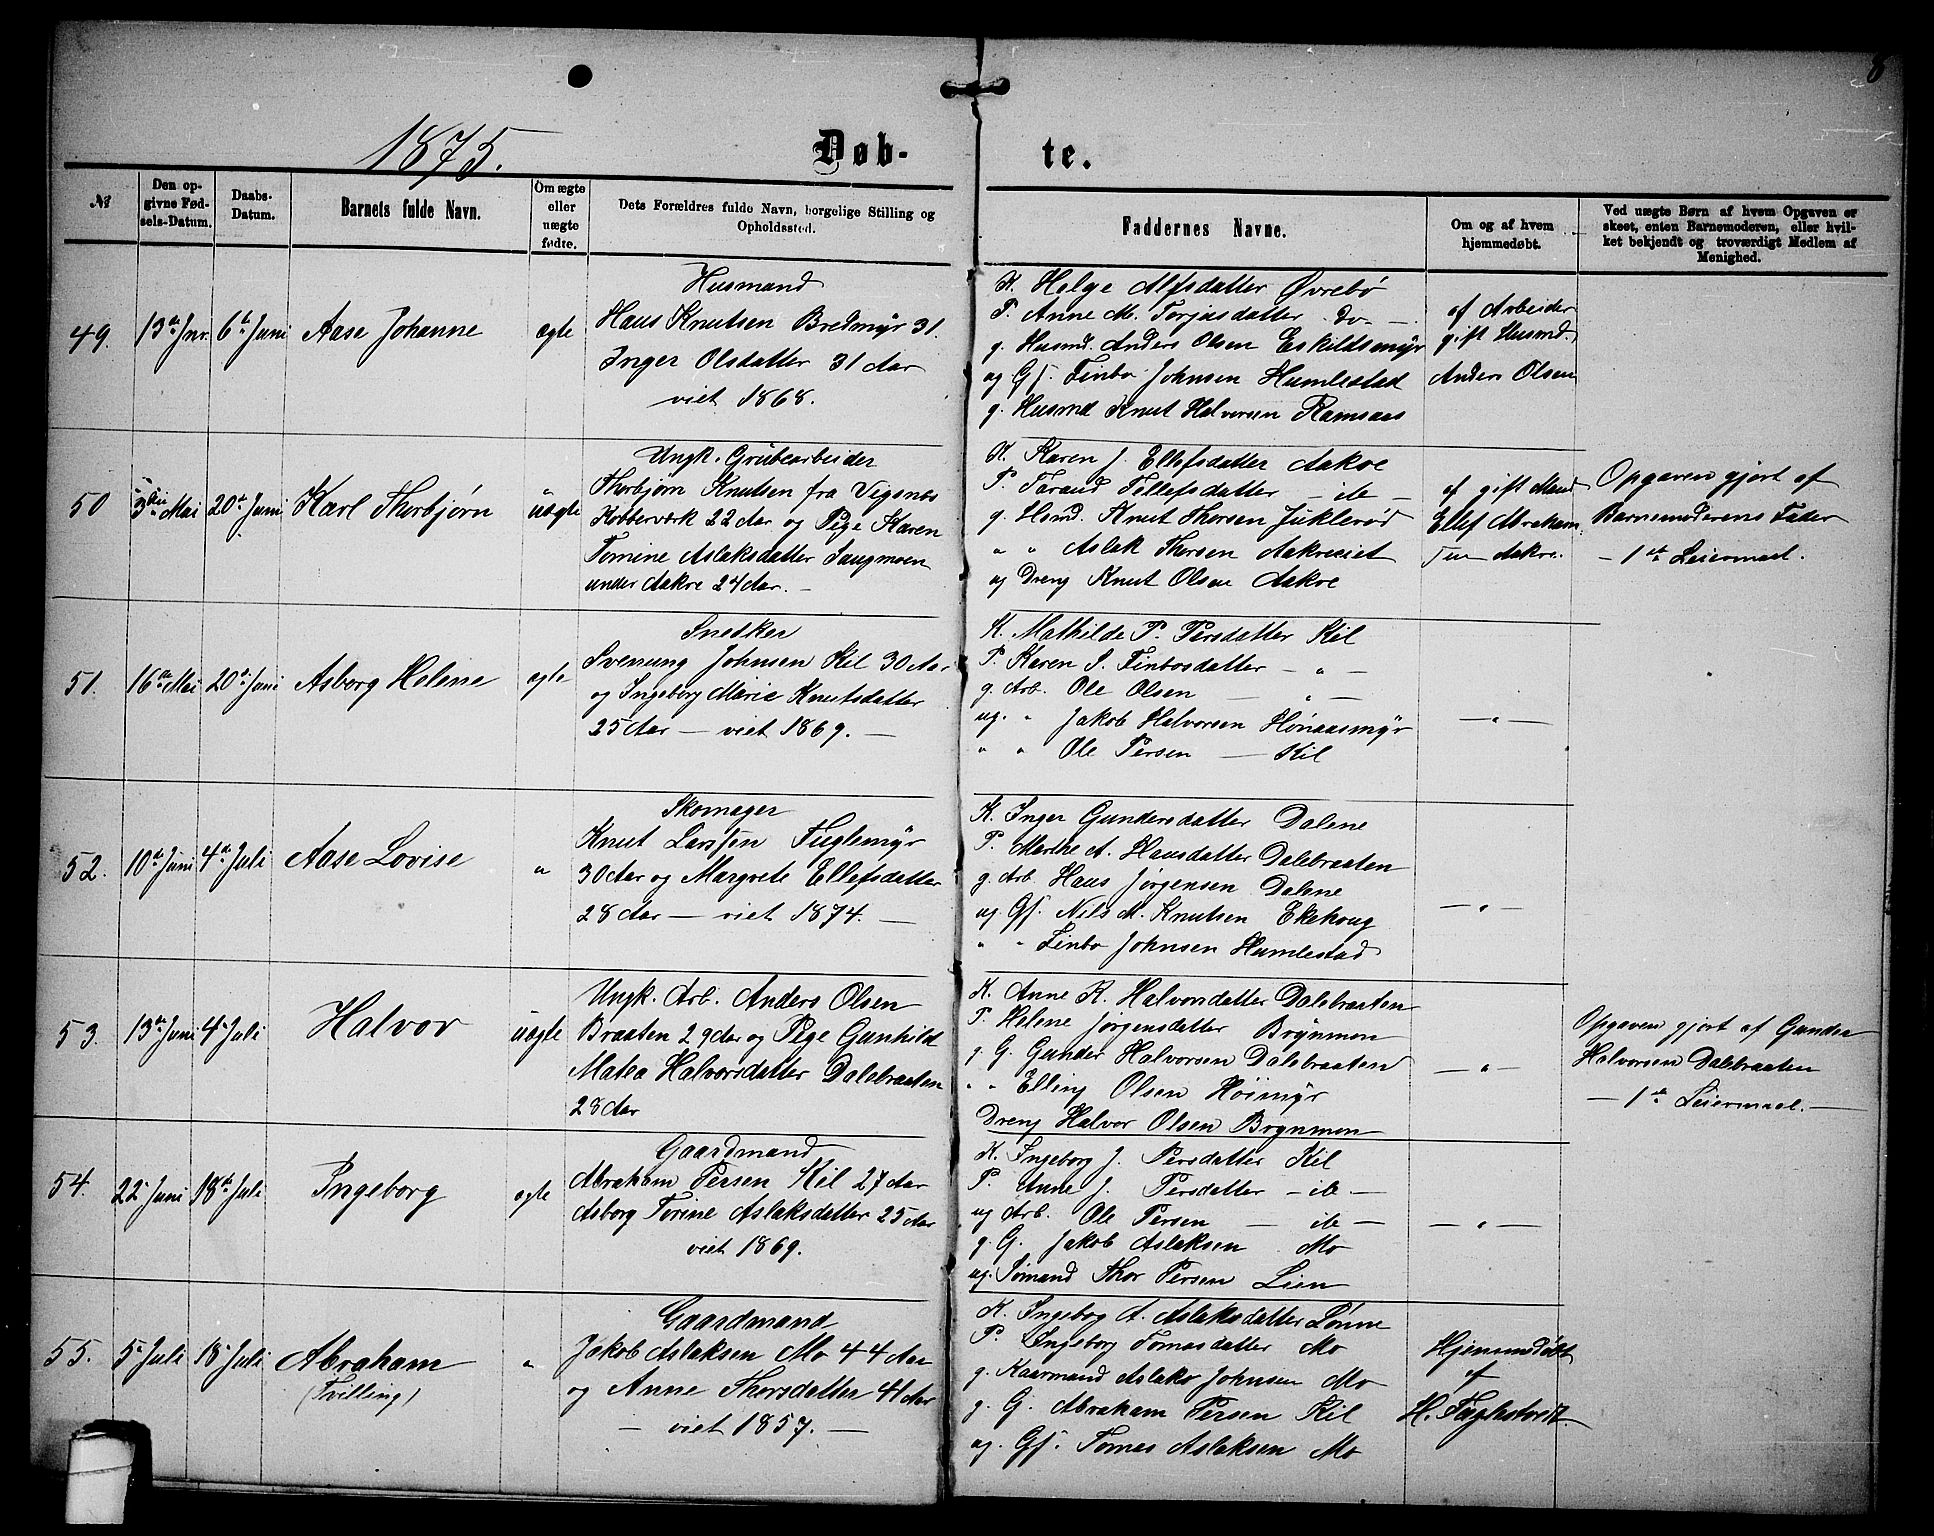 8
1875.
Døb-
te.
№
Den op-
givne Fød-
sels-Datum.
Daabs-
Datum.
Barnets fulde Navn.
Om ægte
eller
uægte
fødte.
Dets Forældres fulde Navn, borgelige Stilling og
Opholdssted.
Faddernes Navne.
Om og af hvem
hjemmedøbt.
Ved uægte Børn af hvem Opgaven er
skeet, enten Barnemoderen, eller hvil-
ket bekjendt og troværdigt Medlem af
Menighed.
49.
13de Jnr.
6te Juni
Aase Johanne
ægte
Husmand
Hans Knutsen Bredmyr 31.
Inger Olsdatter 31 Aar
viet 1868.
K. Helge Alfsdatter Øvrebø
P. Anne M. Torjusdatter do
g. Husmd. Anders Olsen Eskildsmyr
ug Gf. Finbo Johnsen Humlestad
g. Husmd Knut Halvorsen Ramsaas
af Arbeider
gift Husmd.
Anders Olsen
50
3die Mai
20de Juni
Karl Thorbjørn
uægte
Ungk. Grubearbeider
Thorbjørn Knutsen fra Vigsnæs
Kobberværk 22 Aar og Pige Karen
Tomine Aslaksdatter Saugmoen
under Aakre 24 Aar. —
K. Karen J. Ellefsdatter Aakre
P. Tarand Tellefsdatter — do —
g. Hsmd. Knut Thorsen Juklerød
" " Aslak Thorsen Aakreeiet
ug Dreng Knut Olsen Aakre
af gift Mand
Ellef Abraham
sen Aakre.
Opgaven gjort af
Barnemoderens Fader
— 1ste Leiermaal.
51.
16de Mai
20de Juni
Asborg Helene
ægte
Snedker
Svenung Johnsen Kil 30 Aar
og Ingeborg Marie Knutsdatter
25 Aar — viet 1869. —
K. Mathilde P. Persdatter Kil
P. Karen S. Finbosdatter — " —
g. Arb. Ole Olsen — " —
ug. " Jakob Halvorsen Hønaasmyr
" " Ole Persen — Kil
— " —
52.
10de Juni
4de Juli
Aase Lovise
"
Skomager
Knut Larssen Fuglemyr
30 Aar og Margrete Ellefsdatter
28 Aar — viet 1874. —
K. Inger Gundersdatter Dalene
P. Marthe A. Hansdatter Dalebraaten
g. Arb. Hans Jørgensen Dalene
ug Gf. Nils M. Knutsen Ekehoug
" " Finbo Johnsen Humlestad
— " —
53.
13de Juni
4de Juli
Halvor
uægte
Ungk. Arb. Anders Olsen
Braaten 29 Aar og Pige Gunhild
Matea Halvorsdatter Dalebraaten
28 Aar
K. Anne K. Halvorsdatter Dalebraaten
P. Helene Jørgensdatter Brynmon
g. G. Gunder Halvorsen Dalebraaten
" " Elling Olsen Høimyr
Dreng Halvor Olsen Brynmon
— " —
Opgaven gjort af Gunder
Halvorsen Dalebraaten
— 1ste Leiermaal. —
54.
22 Juni
18de Juli
Ingeborg
ægte
Gaardmand
Abraham Persen Kil 27 Aar
Asborg Torine Aslaksdatter 25 Aar
viet 1869.
K. Ingeborg J. Persdatter Kil
P. Anne J. Persdatter — do —
ug Arb. Ole Persen — do —
g. G. Jakob Aslaksen Mo
ug. Sømand Thor Persen Lien
— " —
55.
5 Juli
18 Juli
Abraham
(Tvilling)
"
Gaardmand
Jakob Aslaksen Mo 44 Aar
og Anne Thorsdatter 41 Aar
— viet 1857. —
K. Ingebog A. Aslaksdatter Lønne
P. Ingeborg Tomasdatter Mo
g. Kaarmand Aslak Johnsen Mo
g. G. Abraham Persen Kil
ug. Gf. Tomas Aslaksen Mo
Hjemmedøbt
af